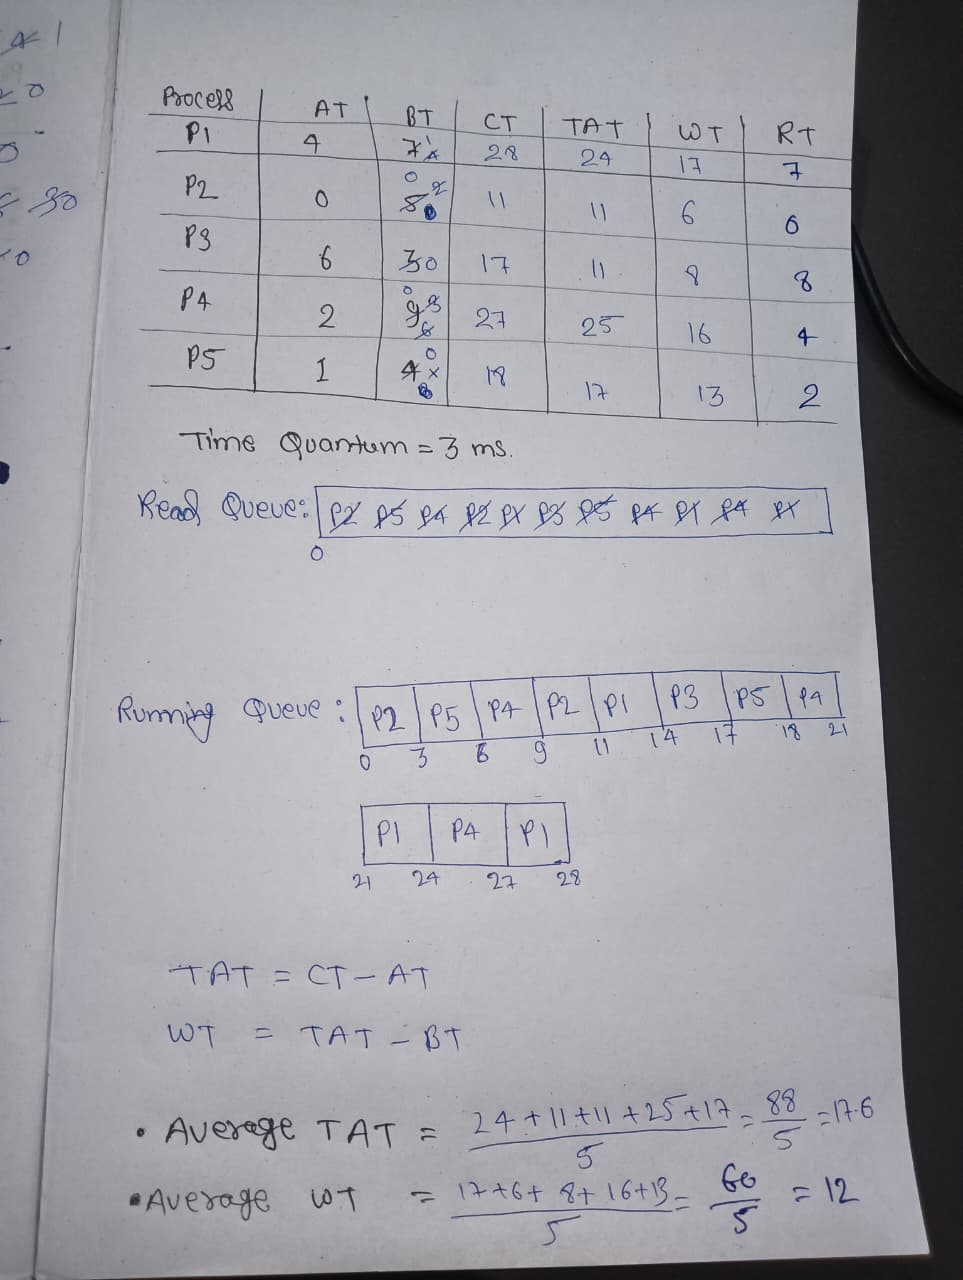 Process AT BT CT TAT WT RT
P1 4 7 28 24 17 7
P2 0 11 11 6 0
P3 6 30 17 11 8 8
P4 2 9 27 25 16 4
P5 1 4 18 17 13 2
Time Quantum = 3 ms.
Read Queue: P2 P5 P4 P2 P1 P3 P5 P4 P1 P4 P1
0
Running Queue: P2 P5 P4 P2 P1 P3 P5 P4
0 3 6 9 11 14 17 18 21
P1 P4 P1
21 24 27 28
TAT = CT - AT
WT = TAT - BT
• Average TAT = 24+11+11+25+17 / 5 = 88 / 5 = 17.6
• Average WT = 17+6+8+16+13 / 5 = 60 / 5 = 12
30